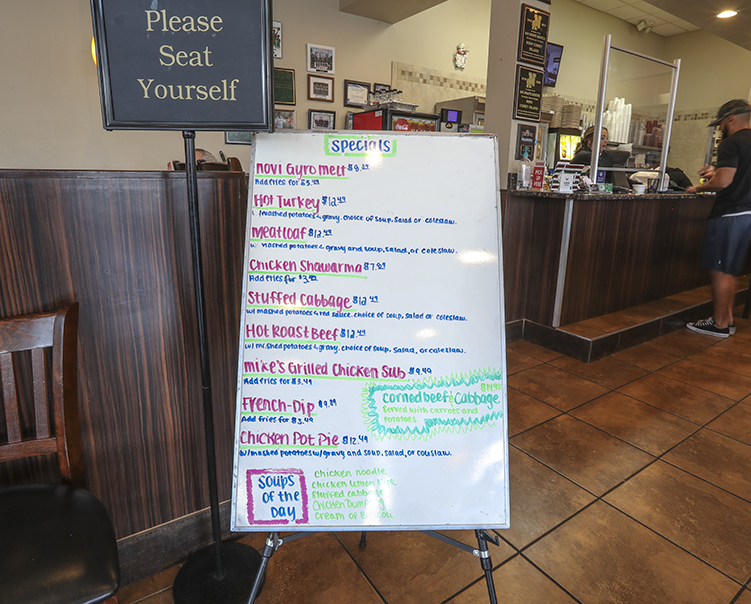 Please
Seat
Yourself
Specials
Novi Gyro Melt
Add fries for $3.49
Hot Turkey $12.49
mashed potatoes & gravy. choice of soup, salad or coleslaw.
Meatloaf $12.49
w/ mashed potatoes & gravy and soup, salad, or coleslaw.
Chicken Shawarma $7.89
Add fries for $3.49
Stuffed Cabbage $12.49
w/ mashed potatoes & red sauce. choice of soup, salad or coleslaw.
Hot Roast Beef $12.49
w/ mashed potatoes & gravy. choice of soup, salad, or coleslaw.
Mike's Grilled Chicken Sub $9.49
Add fries for $3.49
corned beef & Cabbage
Served with carrots and
potatoes.
French-Dip $9.89
Add fries for $3.49
Chicken Pot Pie $12.49
w/ mashed potatoes w/ gravy and soup, salad, or coleslaw.
Soups
of the
day
Chicken noodle
Chicken lemon Rice
Stuffed cabbage
Chicken Dumpling
Cream of Broccoli
Coca-Cola
PICK
UP